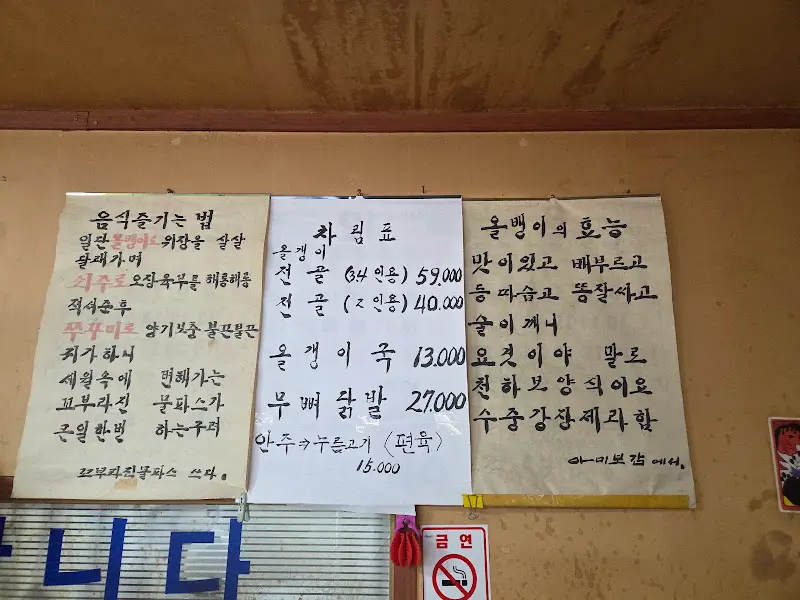 음식즐기는 법
일단 올뱅이로 위장을 살살
달래가며
쇠주로 오장육부를 해롱해롱
적셔준후
쭈꾸미로 양기보충 불끈불끈
취가하니
세월속에 변해가는
꼬부라진 물파스가
큰일한번 하는구려
꼬부라진물파스 쓰다.
차림표
올갱이
전골 (3,4인용) 59.000
전골 (2인용) 40.000
올갱이국 13.000
무뼈닭발 27.000
안주→누름고기 <편육>
15.000
올뱅이의 효능
맛이있고 배부르고
등따습고 똥잘싸고
술이깨니
요것이야 말로
천하보양식이요
수중강장제라함
아미보감에서.
니다
금연